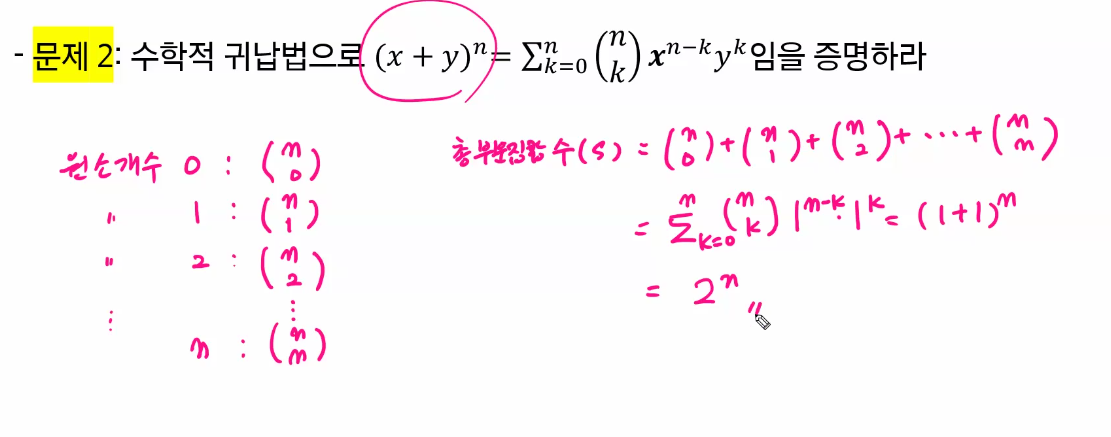 - 문제 2: 수학적 귀납법으로 (x + y)ⁿ = ∑ⁿₖ₌₀ (n k) xⁿ⁻ᵏyᵏ임을 증명하라
원소개수 0 : (n 0)
〃 1 : (n 1)
〃 2 : (n 2)
⋮ ⋮
n : (n n)
총 부분집합 수(S) = (n 0) + (n 1) + (n 2) + ⋯ + (n n)
= ∑ⁿₖ₌₀ (n k) 1ⁿ⁻ᵏ · 1ᵏ = (1+1)ⁿ
= 2ⁿ 〃